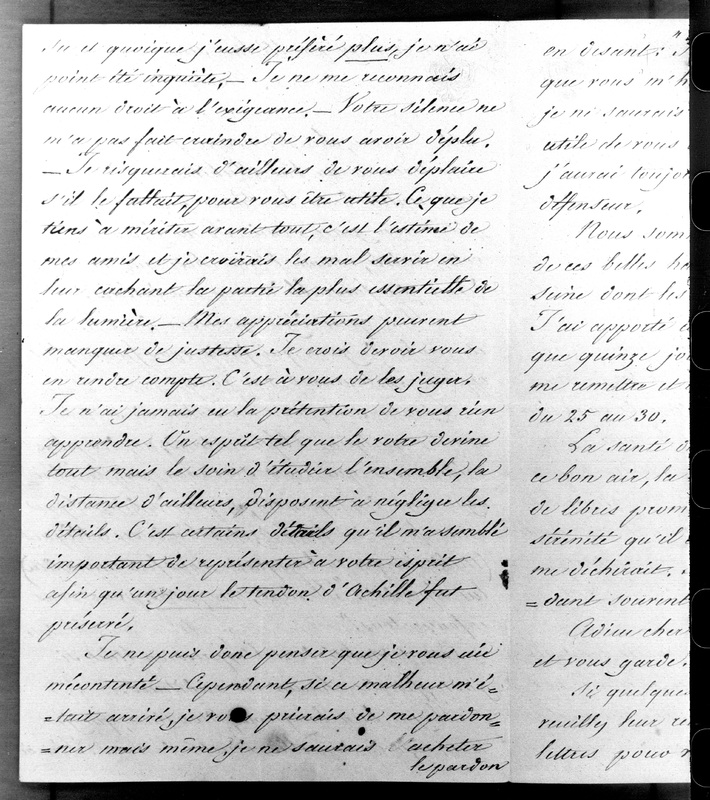 lu et quoique j'eusse préféré plus, je n'ai
point été inquiète. — Je ne me reconnais
aucun droit à l'exigeance. — Votre silence ne
m'a pas fait craindre de vous avoir déplu.
— Je risquerais d'ailleurs de vous déplaire
s'il le fallait, pour vous être utile. Ce que je
tiens à mériter avant tout, c'est l'estime de
mes amis et je croirais les mal servir en
leur cachant la partie la plus essentielle de
la lumière. — Mes appréciations peuvent
manquer de justesse. Je crois devoir vous
en rendre compte. C'est à vous de les juger.
Je n'ai jamais eu la prétention de vous rien
apprendre. Un esprit tel que le votre devine
tout mais le soin d'étudier l'ensemble, la
distance d'ailleurs, disposent à négliger les
détails. C'est certains détails qu'il m'a semblé
important de représenter à votre esprit
afin qu'un jour le tendon d'Achille fut
préservé.
Je ne puis donc penser que je vous aie
mécontenté — Cependant, si ce malheur m'é=
=tait arrivé, je vous prierais de me pardon=
=ner mais même, je ne saurais acheter
le pardon
en disant: "J
que vous m'h
je ne saurais
utile de vous
j'aurai toujor
défenseur.
Nous somm
de ces belles ha
Seine dont les
J'ai apporté d
que quinze jo
me remettre et
du 25 au 30.
La santé d
ce bon air, la
de libres prom
sérénité qu'il
me déchirait.
=dant souvent
Adieu cher
et vous garde.
Si quelques
veuillez leur re
lettres pour